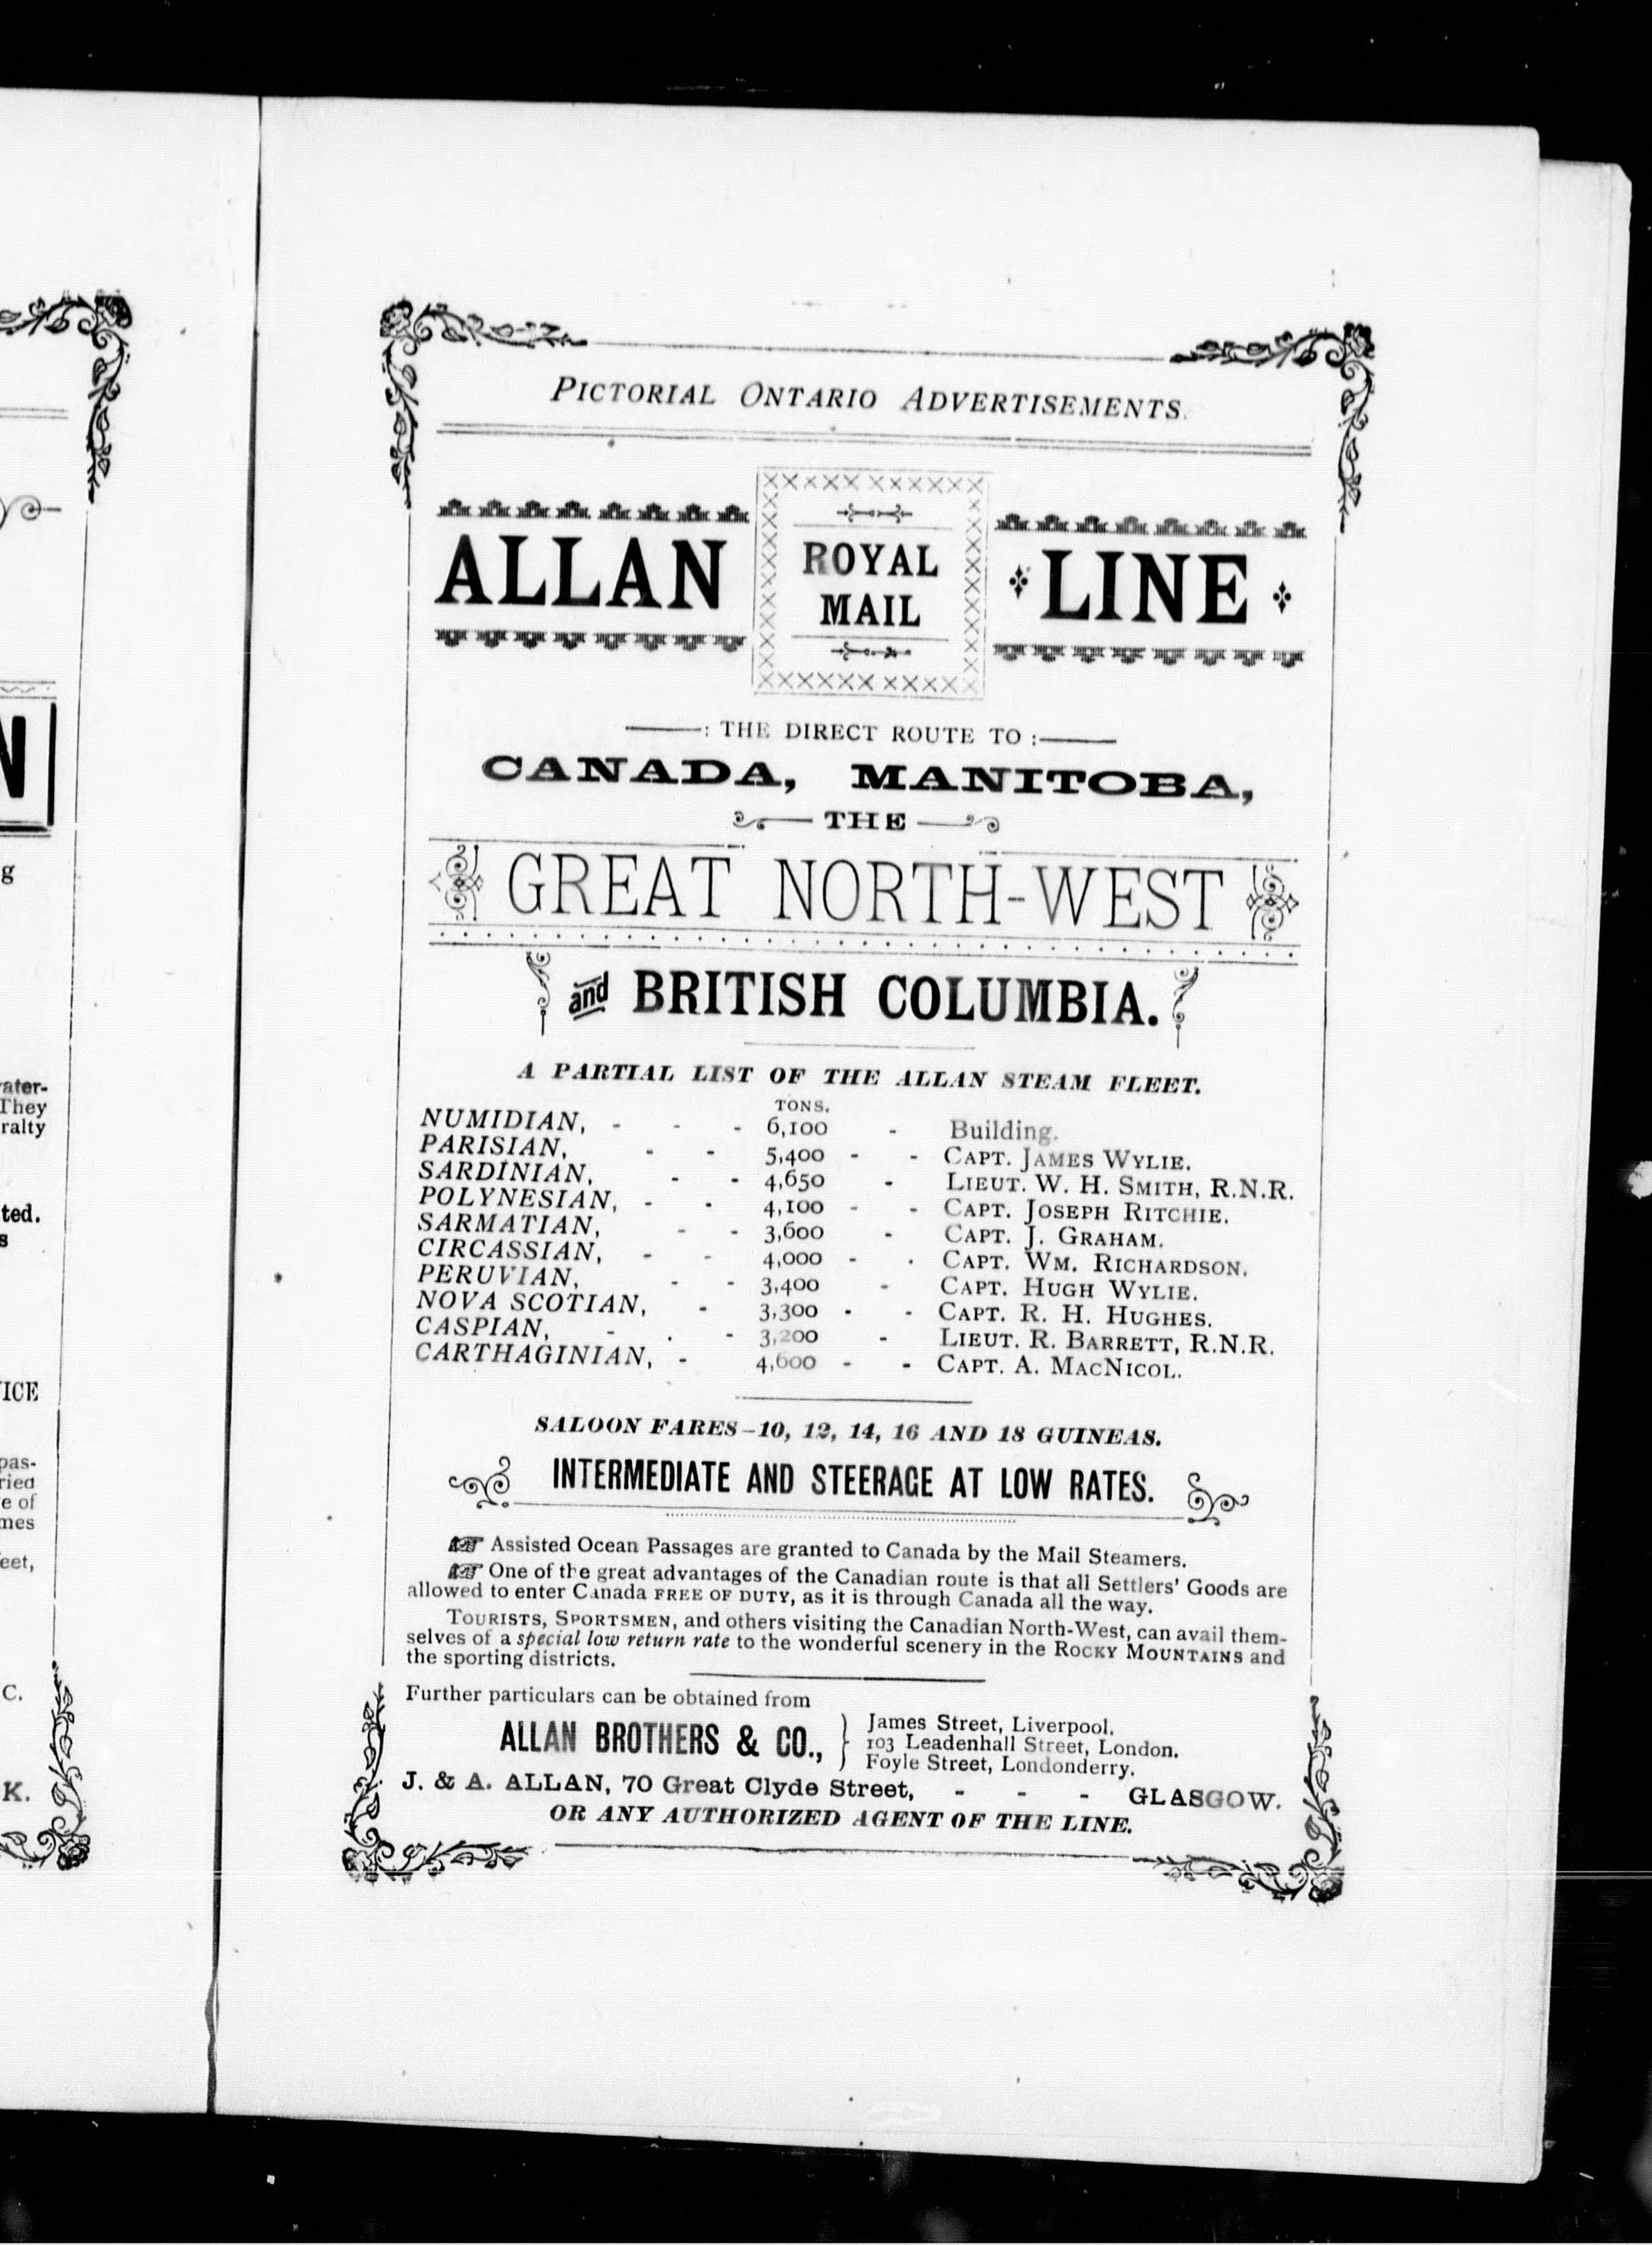 PICTORIAL ONTARIO ADVERTISEMENTS.
ALLAN ROYAL MAIL LINE
: THE DIRECT ROUTE TO :
CANADA, MANITOBA,
THE
GREAT NORTH-WEST
and BRITISH COLUMBIA.
A PARTIAL LIST OF THE ALLAN STEAM FLEET.
TONS.
NUMIDIAN, - - - 6,100 - Building.
PARISIAN, - - 5,400 - - CAPT. JAMES WYLIE.
SARDINIAN, - - 4,650 - LIEUT. W. H. SMITH, R.N.R.
POLYNESIAN, - - 4,100 - - CAPT. JOSEPH RITCHIE.
SARMATIAN, - - 3,600 - CAPT. J. GRAHAM.
CIRCASSIAN, - - 4,000 - - CAPT. WM. RICHARDSON.
PERUVIAN, - - 3,400 - CAPT. HUGH WYLIE.
NOVA SCOTIAN, - 3,300 - - CAPT. R. H. HUGHES.
CASPIAN, - - - 3,200 - LIEUT. R. BARRETT, R.N.R.
CARTHAGINIAN, - 4,600 - - CAPT. A. MACNICOL.
SALOON FARES–10, 12, 14, 16 AND 18 GUINEAS.
INTERMEDIATE AND STEERAGE AT LOW RATES.
☞ Assisted Ocean Passages are granted to Canada by the Mail Steamers.
☞ One of the great advantages of the Canadian route is that all Settlers' Goods are
allowed to enter Canada FREE OF DUTY, as it is through Canada all the way.
TOURISTS, SPORTSMEN, and others visiting the Canadian North-West, can avail them-
selves of a special low return rate to the wonderful scenery in the ROCKY MOUNTAINS and
the sporting districts.
Further particulars can be obtained from
ALLAN BROTHERS & CO.,
James Street, Liverpool.
103 Leadenhall Street, London.
Foyle Street, Londonderry.
J. & A. ALLAN, 70 Great Clyde Street, - - - GLASGOW.
OR ANY AUTHORIZED AGENT OF THE LINE.